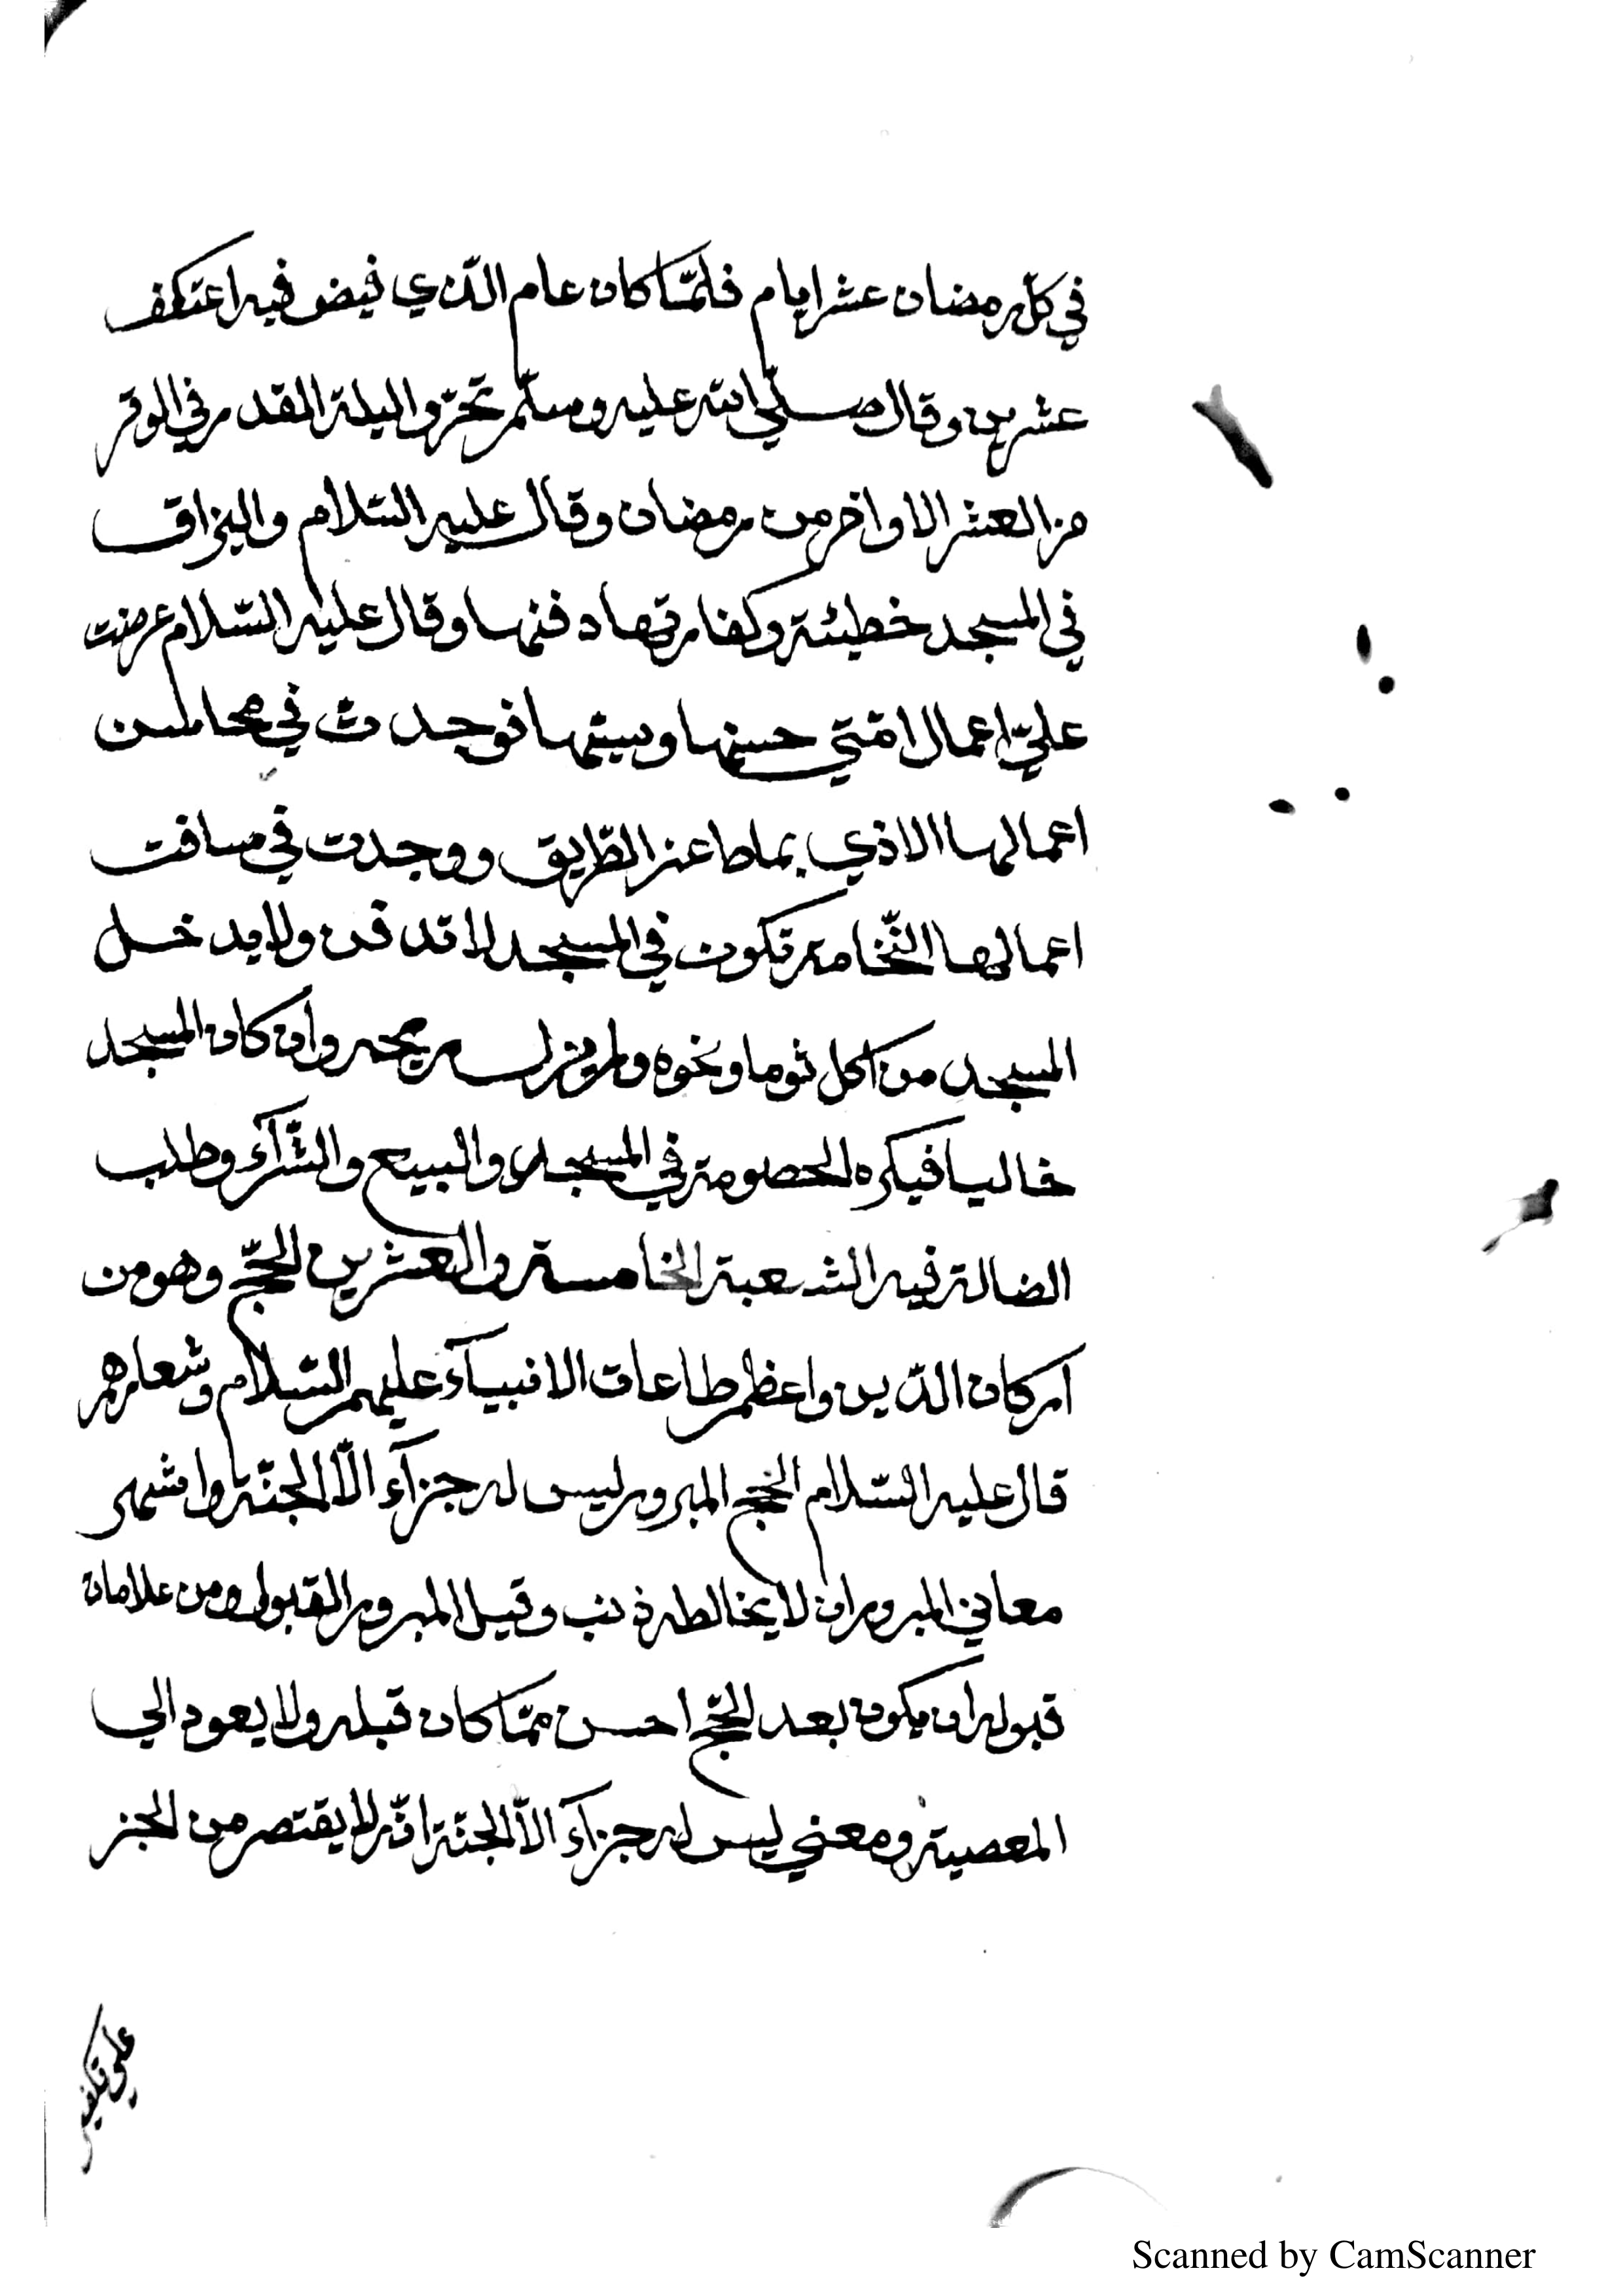 في كلّ رمضان عشر ايام فلمّا كان عام الّذي قبض فيه اعتكف
عشرين وقال صلّي الله عليه وسلّم تحرّوا ليلة القدر في الوتر
من العشر الاواخر من رمضان وقال عليه السّلام والبزاق
في المسجد خطيئة وكفارتها دفنها وقال عليه السّلام عرضت
عليّ اعمال امّتي حسنها وسيئها فوجدت في محاسن
اعمالها الاذي يماط عن الطّريق ووجدت في مساوئ
اعمالها النّخامة تكون في المسجد لا تدفن ولا يدخل
المسجد من اكل ثوما ونحوه ولم يزل ريحه وان كان المسجد
خاليا فيكره الخصومة في المسجد والبيع والشّرآء وطلب
الضالة فيه الشعبة الخامسة والعشرين الحّج وهو من
اركان الدّين واعظم طاعات الانبيآء عليهم السّلام وشعارهم
قال عليه السّلام الحج المبرور ليس له جزآء الّا الجنّة واشهر
معاني المبرور ان لا يخالطه ذنب وقيل المبرور القبول ومن علامات
قبوله ان يكون بعد الحّج احسن ممّا كان قبله ولا يعود الي
المعصية ومعني ليس له جزآء الاّ الجنّة انّه لا يقتصر من الجز
علي تكفير